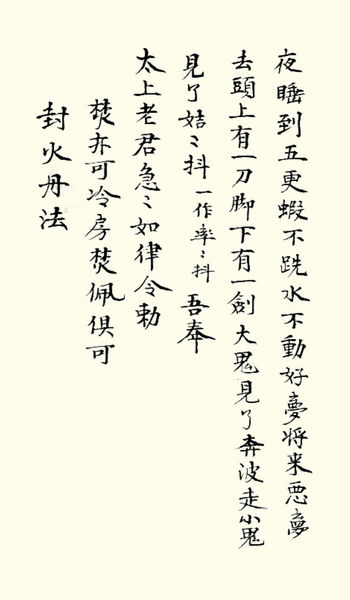 夜睡到五更蝦不跣水不動好夢将来悪夢
去頭上有一刀脚下有一劍大鬼見了奔波走小鬼
見了姞〻抖一作率〻抖吾奉
太上老君急〻如律令勅
焚亦可冷房焚佩俱可
封火丹法